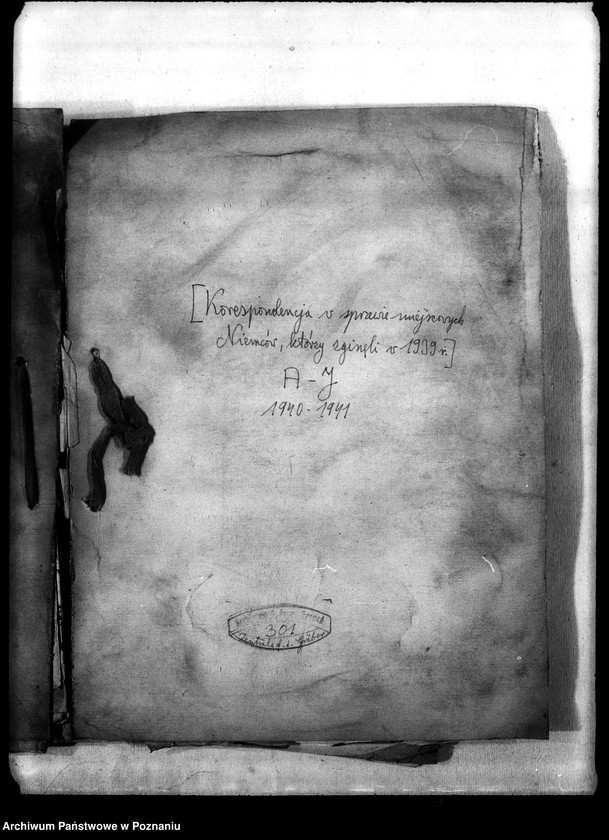 [Korespondencja w sprawie miejscowych
Niemców, którzy zginęli w 1939 r.]
A - J
1940 - 1941
301
Zentrale f. d. Gräber
Archiwum Państwowe w Poznaniu